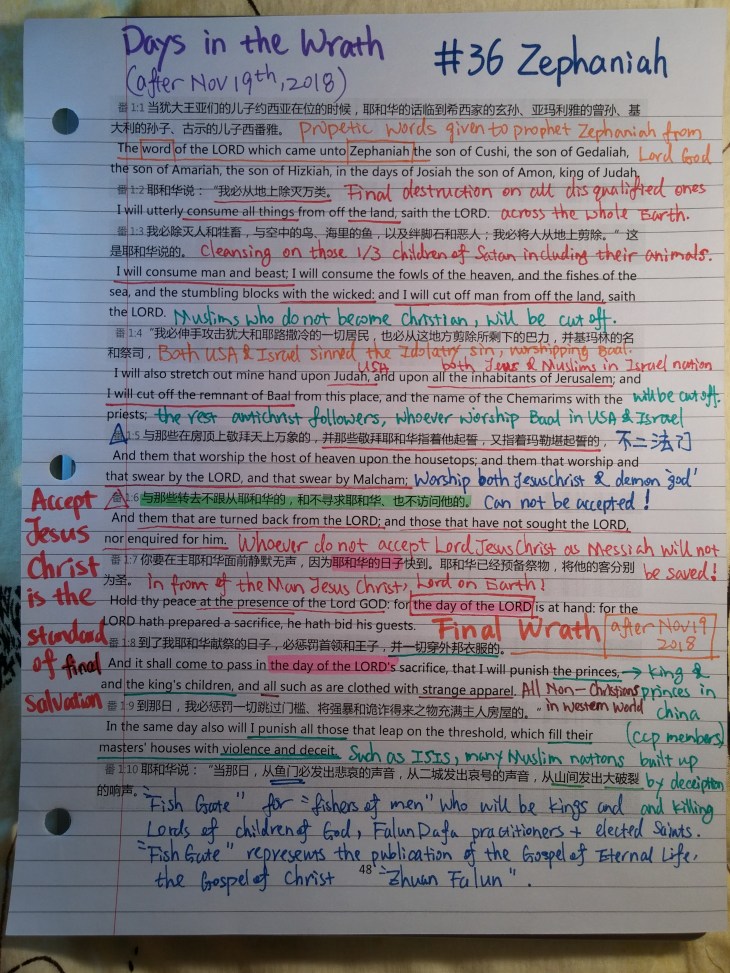 Days in the Wrath
#36 Zephaniah
(after Nov 19th, 2018)
番 1:1 当犹大王亚们的儿子约西亚在位的时候，耶和华的话临到希西家的玄孙、亚玛利雅的曾孙、基
大利的孙子、古示的儿子西番雅。 Propetic words given to prophet Zephaniah from
The word of the LORD which came unto Zephaniah the son of Cushi, the son of Gedaliah, Lord God
the son of Amariah, the son of Hizkiah, in the days of Josiah the son of Amon, king of Judah.
番 1:2 耶和华说：“我必从地上除灭万类。 Final destruction on all disqualified ones
I will utterly consume all things from off the land, saith the LORD. across the whole Earth.
番 1:3 我必除灭人和牲畜，与空中的鸟、海里的鱼，以及绊脚石和恶人；我必将人从地上剪除。”这
是耶和华说的。 Cleansing on those 1/3 children of Satan including their animals.
I will consume man and beast; I will consume the fowls of the heaven, and the fishes of the
sea, and the stumbling blocks with the wicked: and I will cut off man from off the land, saith
the LORD. Muslims who do not become Christian, will be cut off.
番 1:4 “我必伸手攻击犹大和耶路撒冷的一切居民，也必从这地方剪除所剩下的巴力，并基玛林的名
和祭司， Both USA & Israel sinned the Idolatry sin, worshipping Baal.
USA both Jews & Muslims in Israel nation
I will also stretch out mine hand upon Judah, and upon all the inhabitants of Jerusalem; and
I will cut off the remnant of Baal from this place, and the name of the Chemarims with the will be cut off.
priests; the rest antichrist followers, whoever worship Baal in USA & Israel
番 1:5 与那些在房顶上敬拜天上万象的，并那些敬拜耶和华指着他起誓，又指着玛勒堪起誓的， 不二法门
And them that worship the host of heaven upon the housetops; and them that worship and
that swear by the LORD, and that swear by Malcham; Worship both Jesus christ & demon 'god'
番 1:6 与那些转去不跟从耶和华的，和不寻求耶和华、也不访问他的。 Can not be accepted!
And them that are turned back from the LORD; and those that have not sought the LORD,
nor enquired for him. Whoever do not accept Lord Jesus Christ as Messiah will not
番 1:7 你要在主耶和华面前静默无声，因为耶和华的日子快到。耶和华已经预备祭物，将他的客分别 be saved!
为圣。 in front of the Man Jesus Christ, Lord on Earth!
Hold thy peace at the presence of the Lord GOD: for the day of the LORD is at hand: for the
LORD hath prepared a sacrifice, he hath bid his guests. Final Wrath after Nov 19 2018
番 1:8 到了我耶和华献祭的日子，必惩罚首领和王子，并一切穿外邦衣服的。
And it shall come to pass in the day of the LORD's sacrifice, that I will punish the princes, → King &
and the king's children, and all such as are clothed with strange apparel. All Non-Christians princes in
番 1:9 到那日，我必惩罚一切跳过门槛、将强暴和诡诈得来之物充满主人房屋的。” in Western World China
In the same day also will I punish all those that leap on the threshold, which fill their (ccp members)
masters' houses with violence and deceit. Such as ISIS, many Muslim nations built up
番 1:10 耶和华说：“当那日，从鱼门必发出悲哀的声音，从二城发出哀号的声音，从山间发出大破裂 by deception
的响声。 and killing
"Fish Gate" for "fishers of men" who will be kings and
Lords of children of God, Falun Dafa practitioners + elected Saints.
"Fish Gate" represents the publication of the Gospel of Eternal Life,
the Gospel of Christ "Zhuan Falun".
48
Accept
Jesus
Christ
is the
standard
of final
salvation